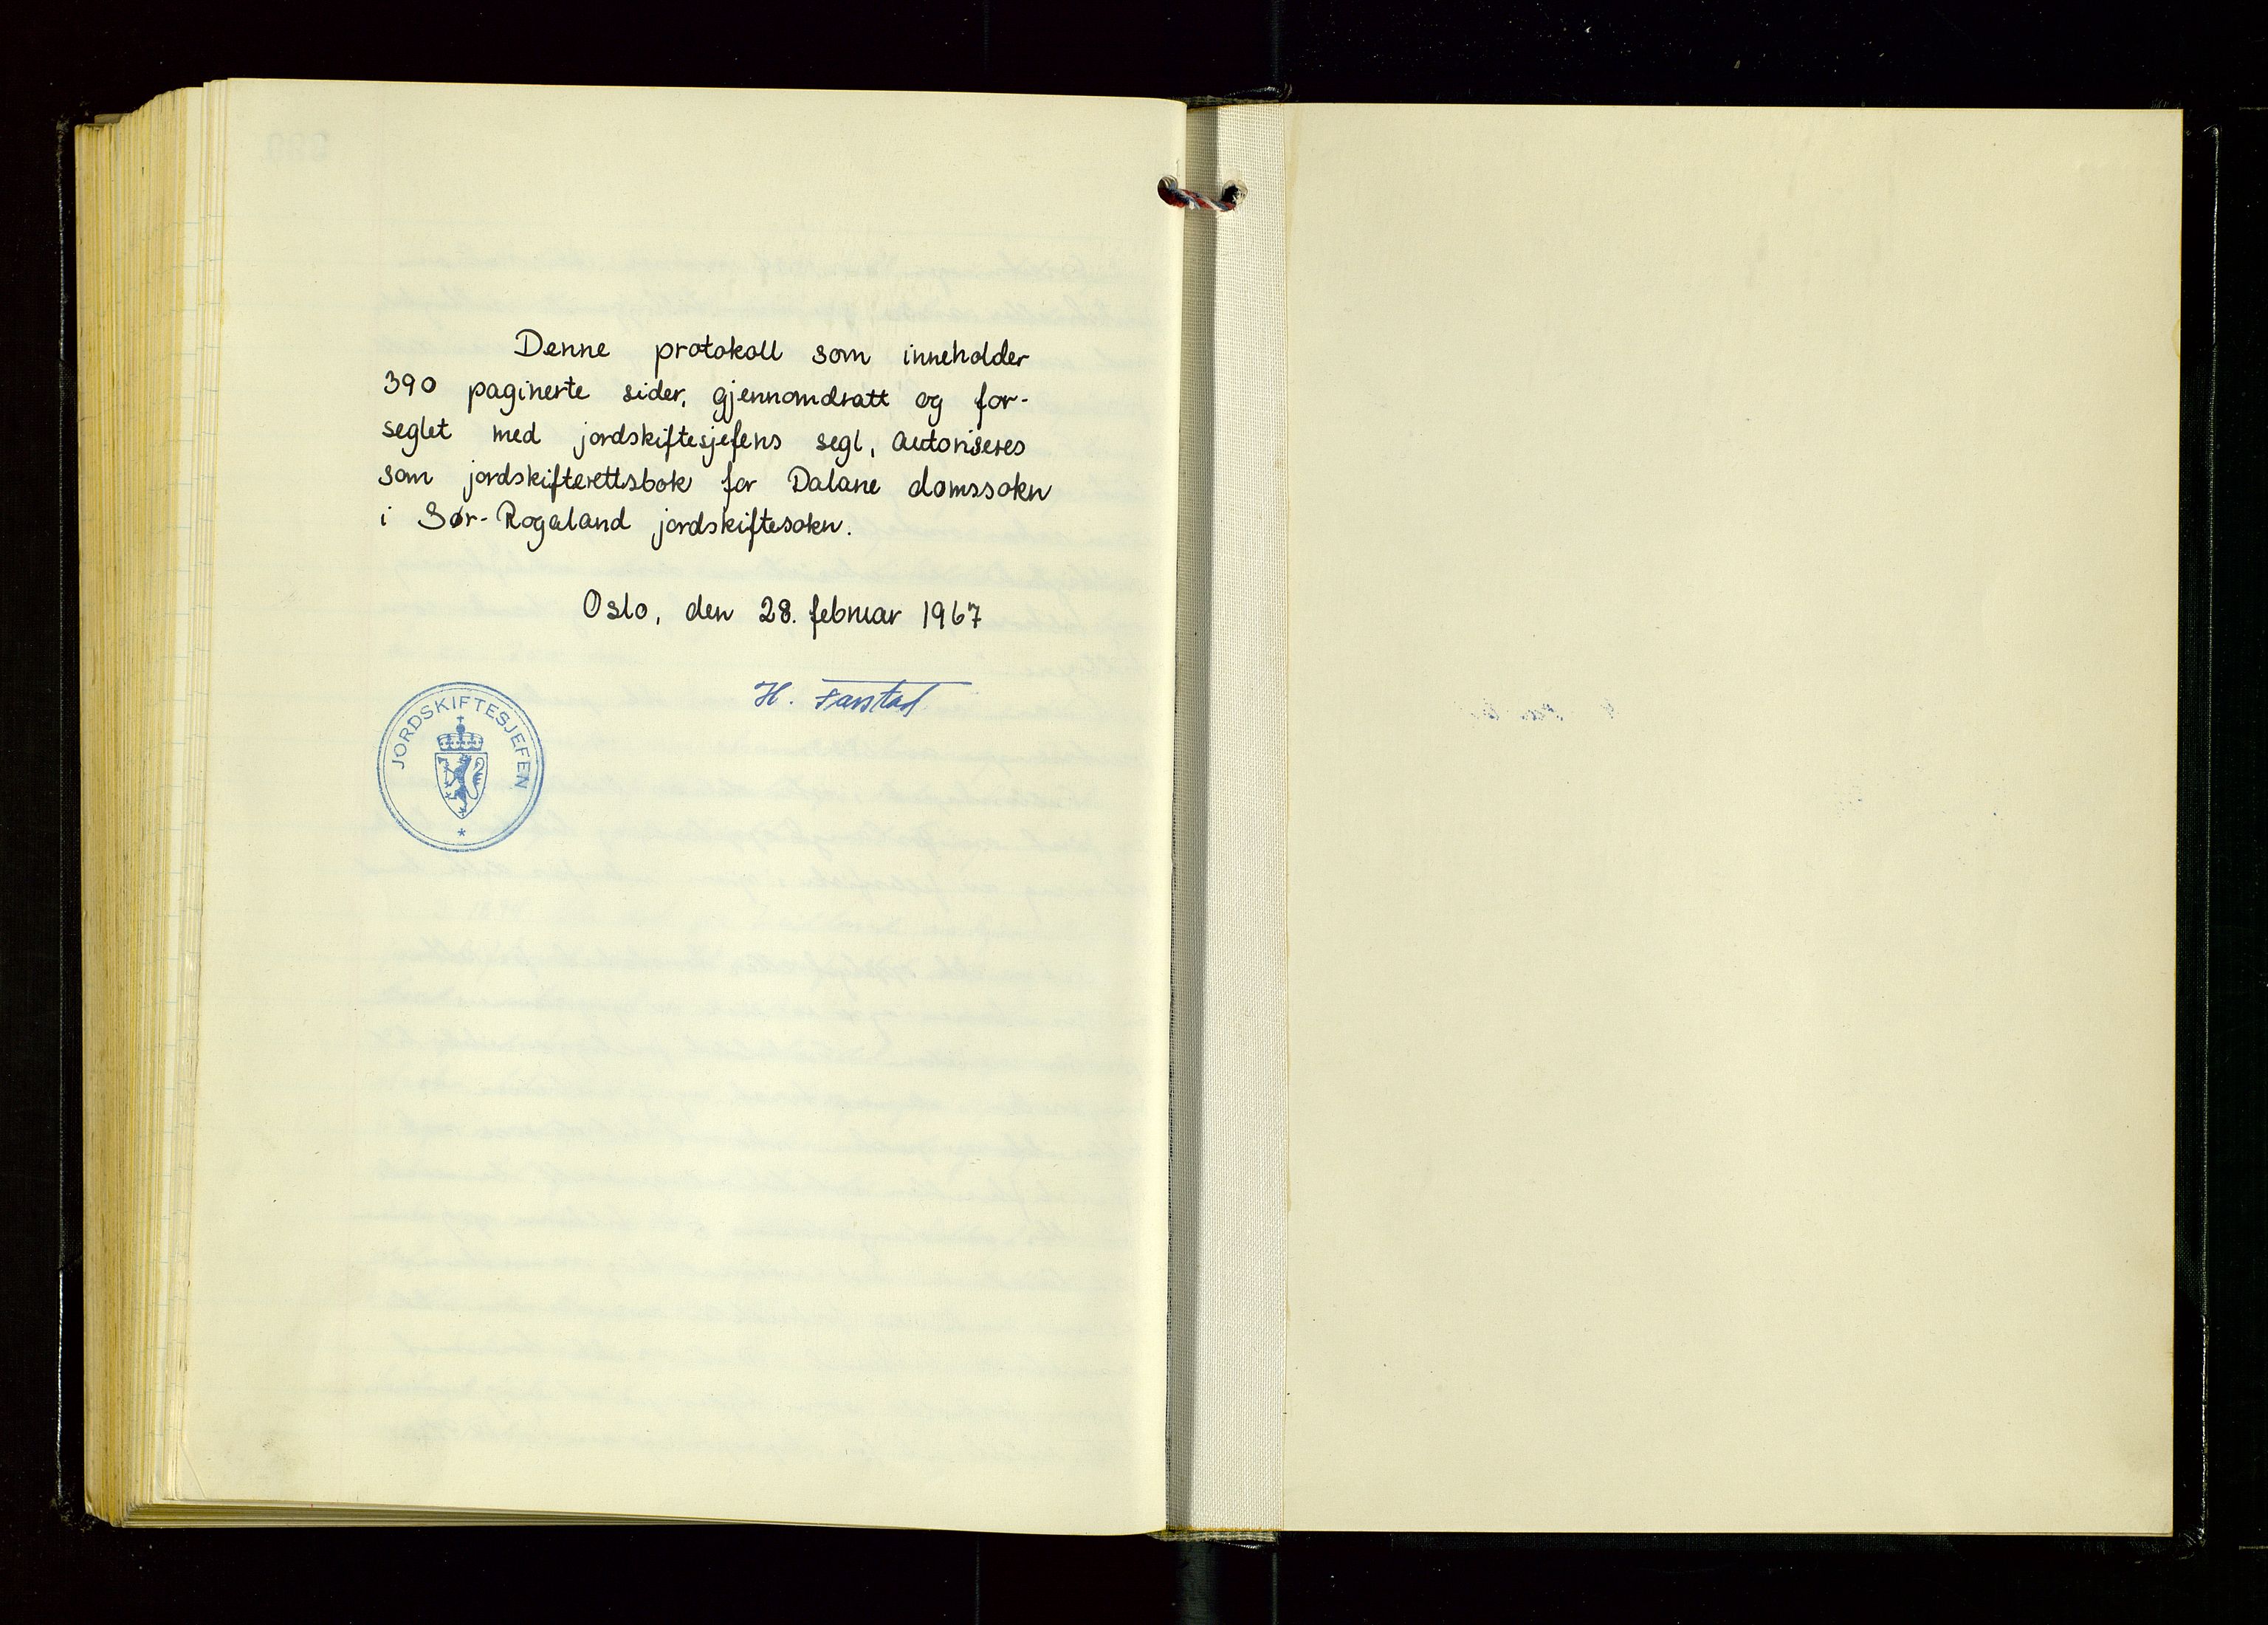 Denne protokoll som inneholder
390 paginerte sider, gjennomdratt og for-
seglet med jordskiftesjefens segl, autoriseres
som jordskifterettsbok for Dalane domssokn
i Sør-Rogaland jordskiftesokn.
Oslo, den 28. februar 1967
H. Farstad
JORDSKIFTESJEFEN
*